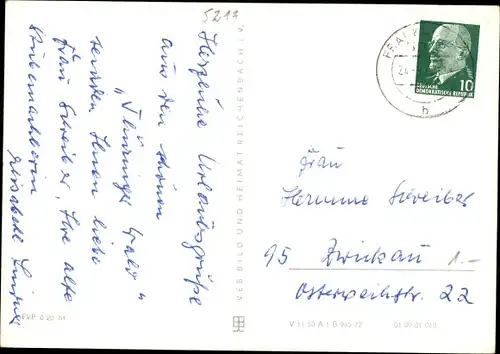 5211
Herzliche Urlaubsgrüße
aus dem schönen
„Thüringer Wald“
senden Ihnen liebe
Frau Schreiber, Ihre alte
Stubennachbarin
Elisabeth
VEB BILD UND HEIMAT REICHENBACH I. V.
EVP 0,20 M
10
DEUTSCHE
DEMOKRATISCHE REPUBLIK
24
b
Frau
Schreiber
95 Zwickau 1.-
Osterweihstr. 22
V 11 50 A 1 B 965/72 01 09 01 063